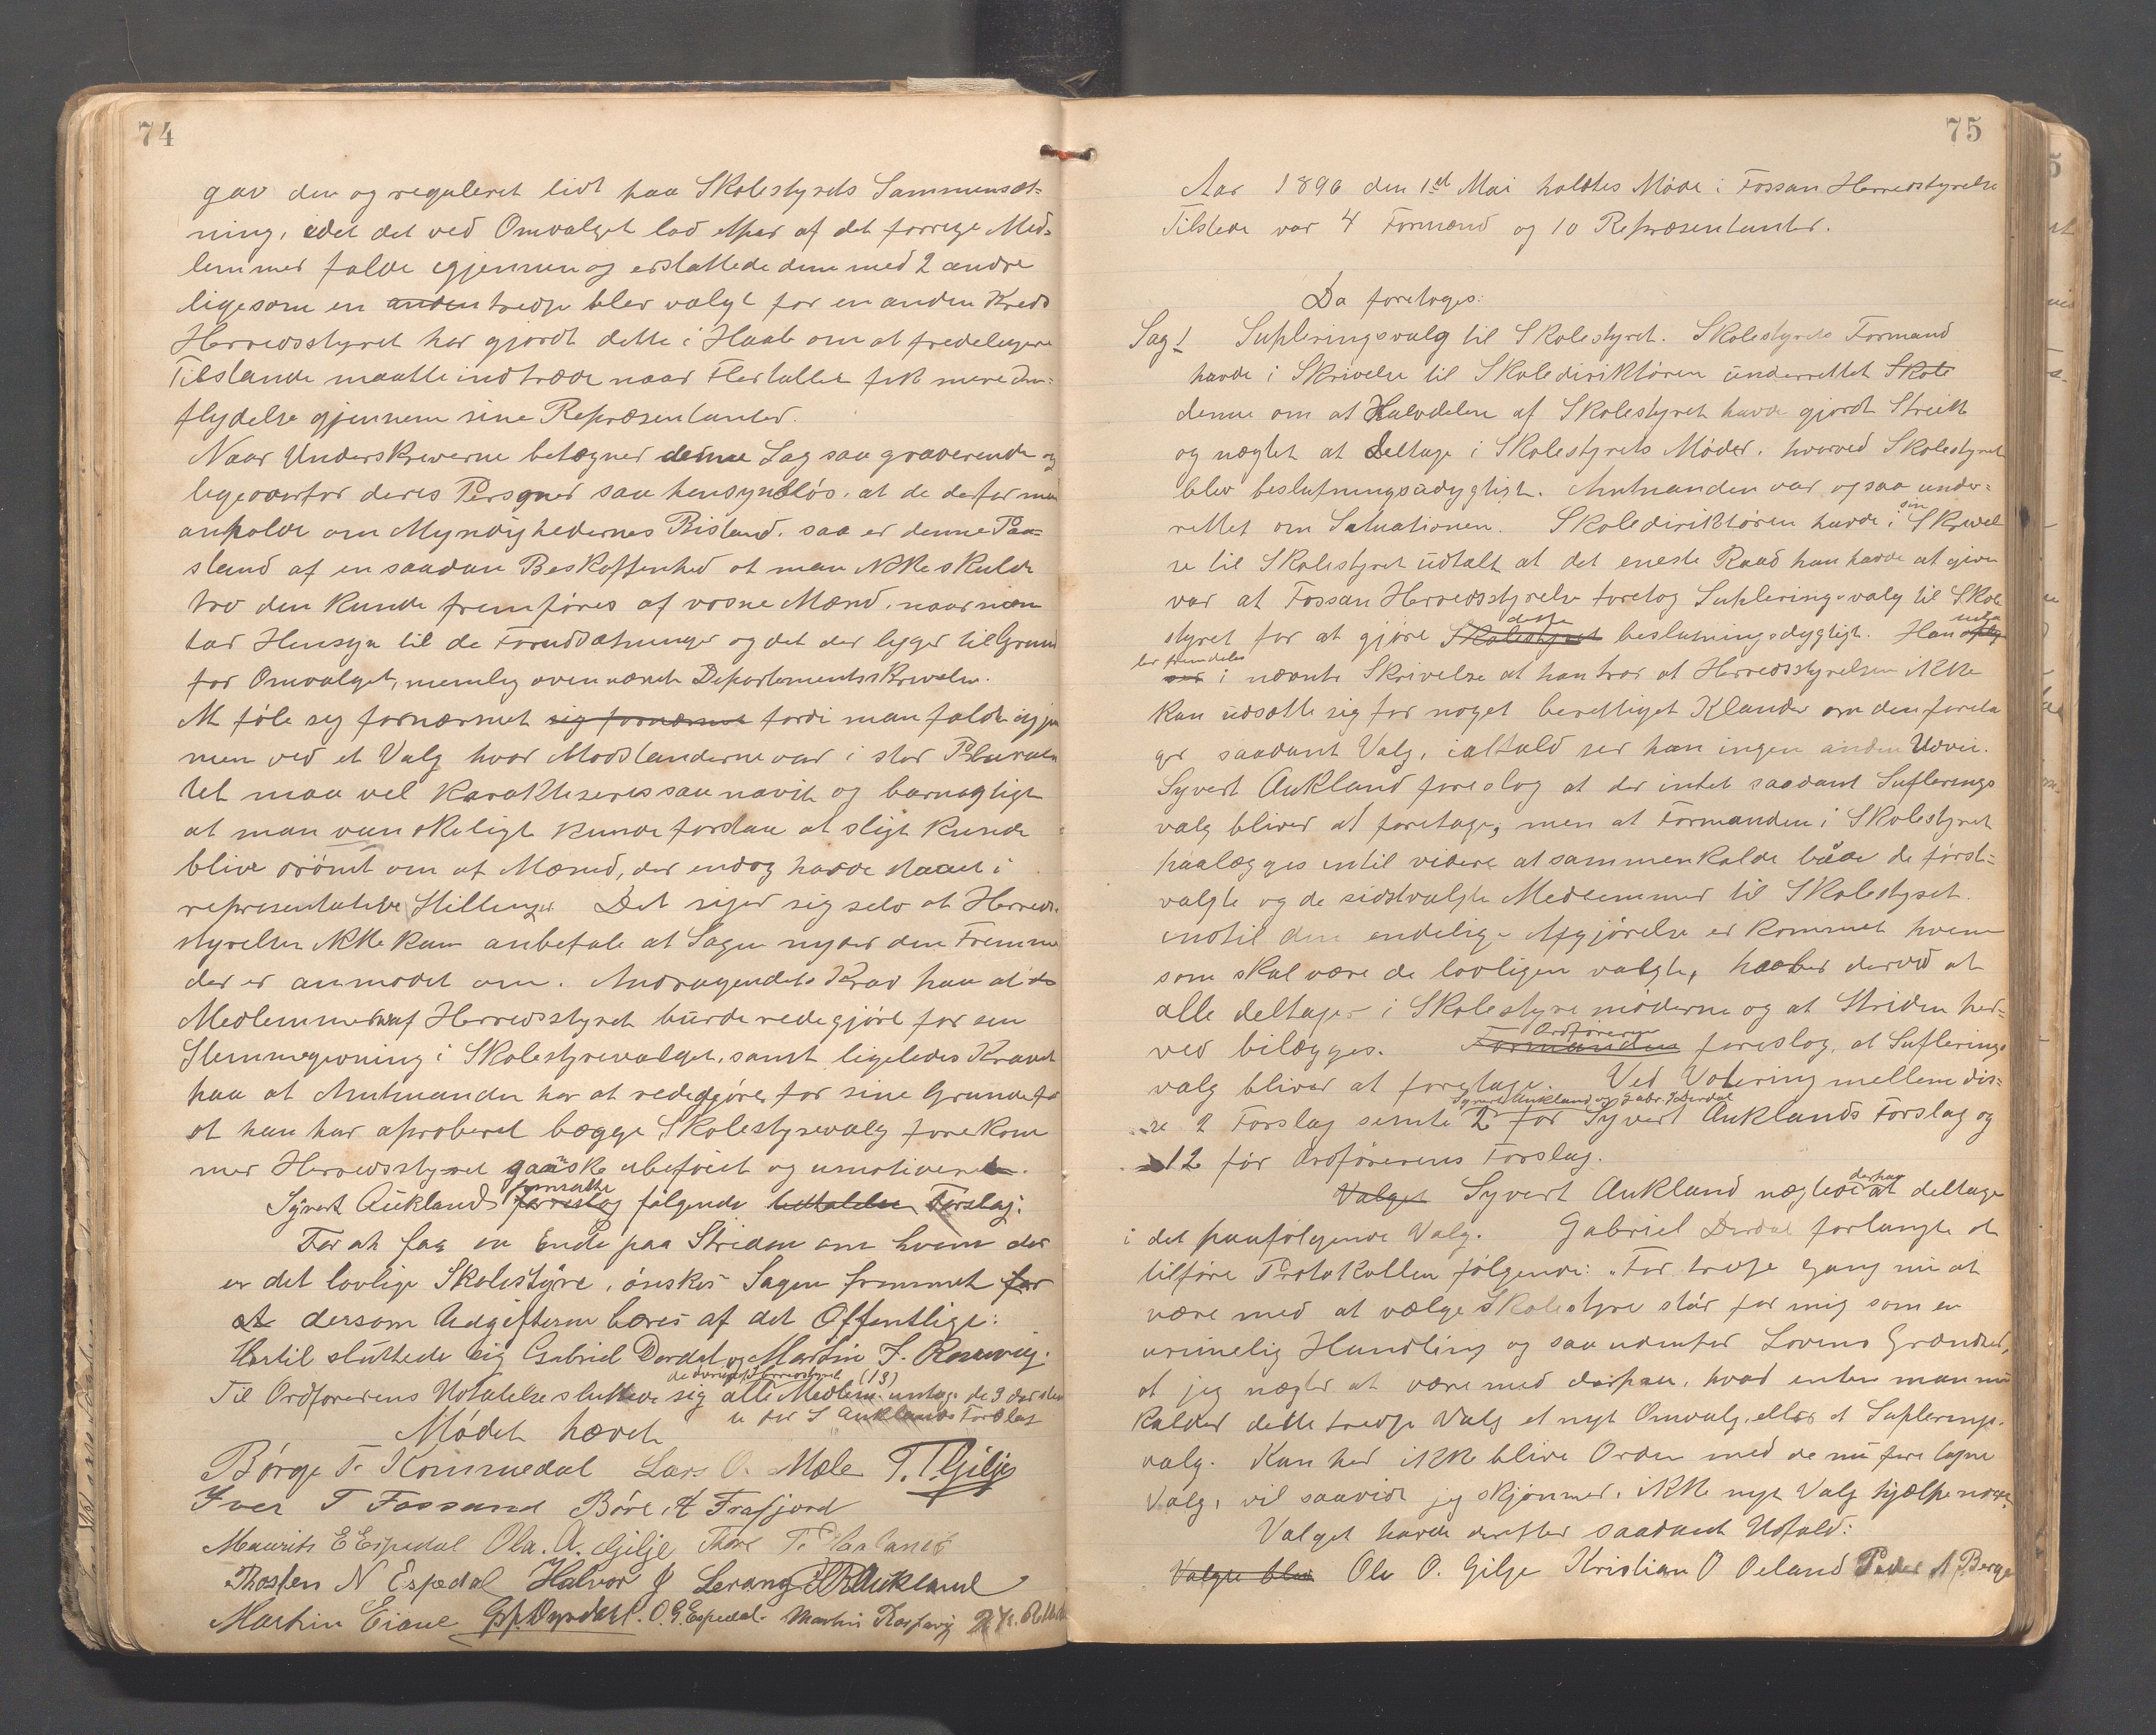 74
gav den og reguleret lidt paa Skolestyrets Sammensæt-
ning, idet det ved Omvalget lod etpar af det forrige Med-
lemmer falde igjennem og erstattede dem med 2 andre
ligesom en anden tredje blev valgt for en anden Kreds
Herredsstyret har gjordt dette i Haab om at fredeligere
Tilstande maatte indtræde naar Flertallet fik mere Ind-
flydelse gjennem sine Repræsentanter.
Naar Underskriverne betegner denne Sag saa graverende og
ligeoverfor deres Personer saa hensynsløs, at de derfor maa
anholde om Myndighedernes Bistand, saa er denne Paa-
stand af en saadan Beskaffenhed at man ikke skulde
tro den kunde fremføres af vosne Mænd, naar man
tar Hensyn til de Forudsætninger og det der ligger til Grund
for Omvalget, nemlig ovennævnte Departementsskrivelse.
At føle sig fornærmet sig fornærmet fordi man faldt igjen
nem ved et Valg hvor Modstanderne var i stor Plurali
tet maa vel karakteriseres saa navit og barnagtigt
at man vanskeligt kunde forstaa at sligt kunde
blive drømt om af Mænd, der endog havde staaet i
representative Stillinger. Det siger sig selv at Herreds-
styrelsen ikke kan anbefale at Sagen nyder den Fremme
der er anmodet om. Andragendets Krav paa at de
Medlemmer af Herredsstyret burde redegjøre for sin
Stemmegivning i Skolestyrevalget, samt ligeledes Kravet
paa at Amtmanden har at redegjøre for sine Grunde for
at han har aproberet begge Skolestyrevalg forekom
mer Herredsstyret ganske ubeføiet og umotiveret.
Syvert Aukland foreslog fremsatte følgende Udtalelse Forslag:
For at faa en Ende paa Striden om hvem der
er det lovlige Skolestyre, ønskes Sagen fremmet for
at dersom Udgifterne bæres af det Offentlige:
Hertil sluttede sig Gabriel Dørdal og Martin T. Rossavig.
Til Ordførerens Udtalelse sluttede sig alle de øvrige af Herredsstyret (13) Medlem. untag. de 3 der stem
te for S Auklands Forslag
Mødet hævet
Børge T. Kommedal Lars O. Mæle T. T. Gilje
Iver T Fossand Børe A Frafjord
Maurits E Espedal Ola. A. Gilje Thore T. Haaland
Thosten N Espedal Halvor J Lerang S R Aukland
Martin Eiane G. P. Dyrdahl. O. G. Espedal. Martin Rossavig
75
Aar 1896 den 1st Mai holdtes Møde i Fossan Herredsstyrelse
Tilstede var 4 Formænd og 10 Repræsentanter.
Da foretoges:
Sag 1 Supleringsvalg til Skolestyret. Skolestyrets Formand
havde i Skrivelse til Skoledirektøren underrettet Skole
denne om at Halvdelen af Skolestyret havde gjordt Streik
og nægtet at deltage i Skolestyrets Møder, hvorved Skolestyret
blev beslutningsudygtigt. Amtmanden var ogsaa under-
rettet om Situationen. Skoledirektøren havde i sin Skrivel
se til Skolestyret udtalt at det eneste Raad han havde at give
var at Fossan Herredsstyrelse foretog Supleringsvalg til Skole
styret for at gjøre Skolestyret dette beslutningsdygtigt. Han udta
ler fremdeles i nævnte Skrivelse at han tror at Herredsstyrelsen ikke
kan udsætte sig for noget berettiget Klander om den foreta
ger saadant Valg, ialfald ser han ingen anden Udvei.
Syvert Aukland foreslog at der intet saadant Suplerings
valg bliver at foretage, men at Formanden i Skolestyret
paalægges intil videre at sammenkalde både de først-
valgte og de sidstvalgte Medlemmer til Skolestyret.
indtil den endelige Afgjørelse er kommet hvem
som skal være de lovligen valgte, haaber derved at
alle deltager i Skolestyremøderne og at Striden her-
ved bilægges. Formanden Ordføreren foreslog, at Suplerings
valg bliver at foretage. Ved Votering mellem dis-
se 2 Forslag stemte 2 Syvert Aukland og Gabr. Dørdal for Syvert Auklands Forslag og
12 for Ordførerens Forslag.
Valget Syvert Aukland nægtede derpaa at deltage
i det paafølgende Valg. Gabriel Dørdal forlangte at
tilføre Protokollen følgende: "For tredje Gang nu at
være med at vælge Skolestyre står for mig som en
urimelig Handling og saa udenfor Lovens Grændser,
at jeg nægter at være med derpaa, hvad enten man nu
kalder dette tredje Valg et nyt Omvalg, eller et Suplerings-
valg. Kan her ikke blive Orden med de nu foretagne
Valg, vil saavidt jeg skjønner, ikke nyt Valg hjælpe noget.
Valget havde derefter saadant Udfald:
Valgte blev Ole O. Gilje Kristian O Oeland Peder A Berge